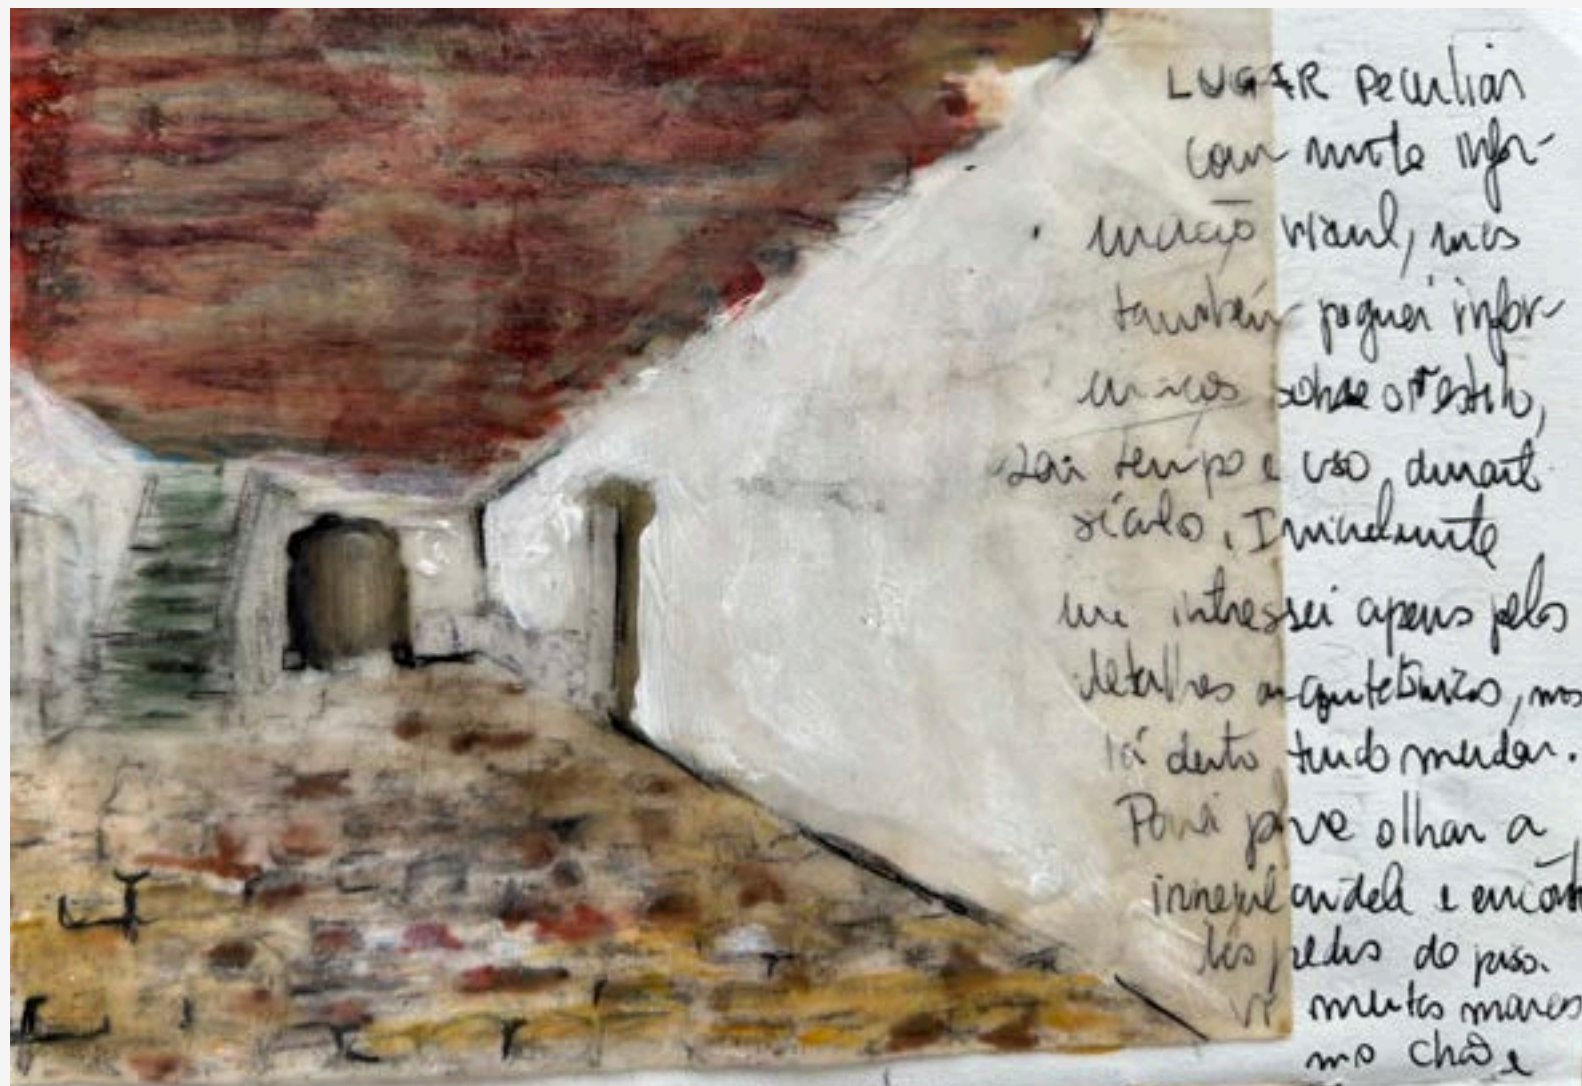 LUGAR peculiar
com muita infor-
mação visual, mas
também peguei infor-
mações sobre o estilo,
tempo e uso durante
século. Inicialmente
me intressei apenas pelos
detalhes arquitetônicos, mas
lá dentro tudo mudar.
Parei para olhar a
irregularidade e encont
das pedras do piso.
vi muitas marcas
no chão e